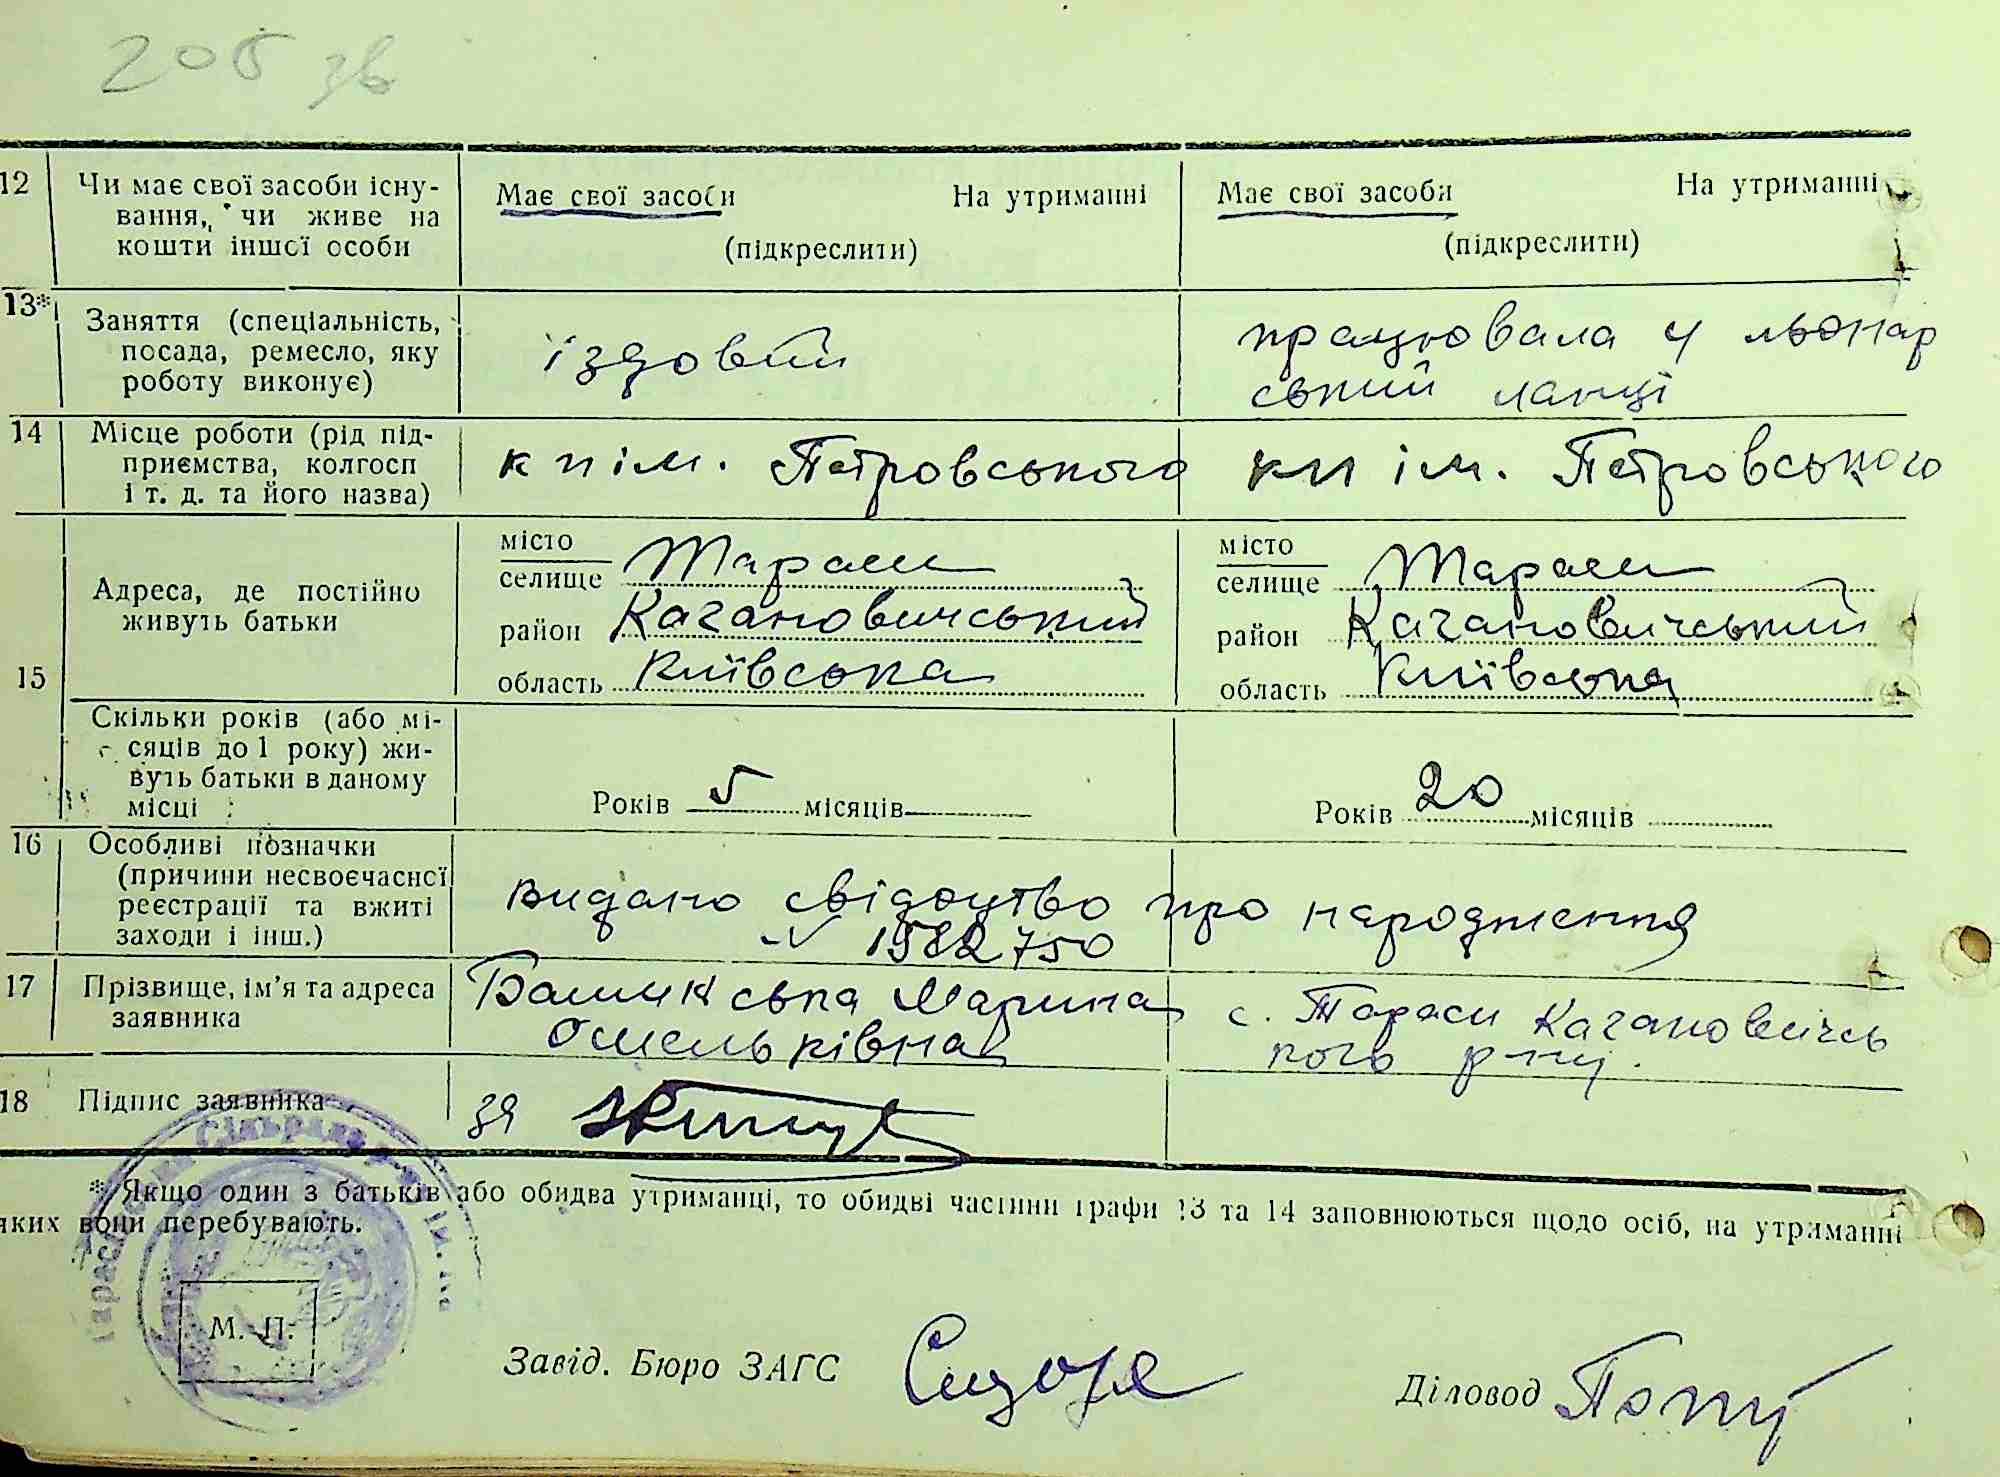 205 зв
12 Чи має свої засоби існу-
вання, чи живе на
кошти іншої особи
Має свої засоби На утриманні
(підкреслити)
Має свої засоби На утриманні
(підкреслити)
13* Заняття (спеціальність,
посада, ремесло, яку
роботу виконує)
їздовий
працювала у льонар
ський ланці
14 Місце роботи (рід під-
приємства, колгосп
і т. д. та його назва)
к п ім. Петровського
кп ім. Петровського
15 Адреса, де постійно
живуть батьки
місто
селище Тараси
район Кагановичський
область Київська
місто
селище Тараси
район Кагановичський
область Київська
Скільки років (або мі-
сяців до 1 року) жи-
вуть батьки в даному
місці
Років 5 місяців
Років 20 місяців
16 Особливі позначки
(причини несвоєчасної
реєстрації та вжиті
заходи і інш.)
видано свідоцтво про народження
N 1582750
17 Прізвище, ім'я та адреса
заявника
Марина
Омельківна
с. Тараси Кагановичсь
кого р-ну.
18 Підпис заявника
за
* Якщо один з батьків або обидва утриманці, то обидві частини графи 13 та 14 заповнюються щодо осіб, на утриманні
яких вони перебувають.
Сільрада
М. П.
Завід. Бюро ЗАГС
Діловод